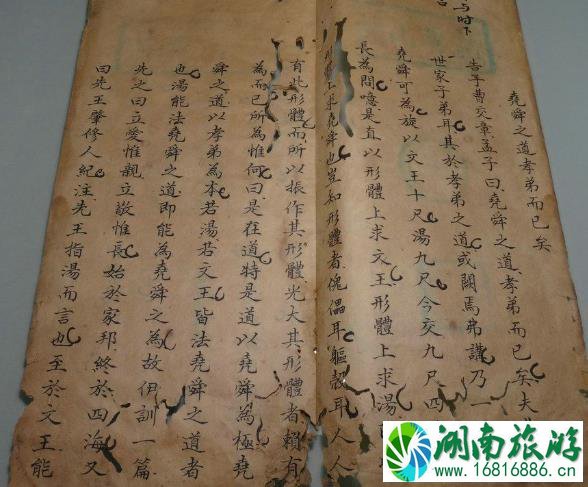 与时下
堯舜之道孝弟而已矣
告子曹交章孟子曰堯舜之道孝弟而已矣夫
世家子弟耳其於孝弟之道或闕焉弗講乃一
堯舜可為旋以文王十尺湯九尺今交九尺四
長為問噫是直以形體上求文王形體上求湯
形體上求堯舜也豈知形體者傀儡耳軀殼耳人人
有此形體而所以振作其形體光大其形體者賴有
為而已所為惟何曰是在道特是道以堯舜為極堯
舜之道以孝弟為本若湯若文王皆法堯舜之道者
也湯能法堯舜之道即能為堯舜之為故伊訓一篇
先之曰立愛惟親立敬惟長始於家邦終於四海又
曰先王肇修人紀注先王指湯而言也至於文王能
湖南旅游
www.16816886.cn